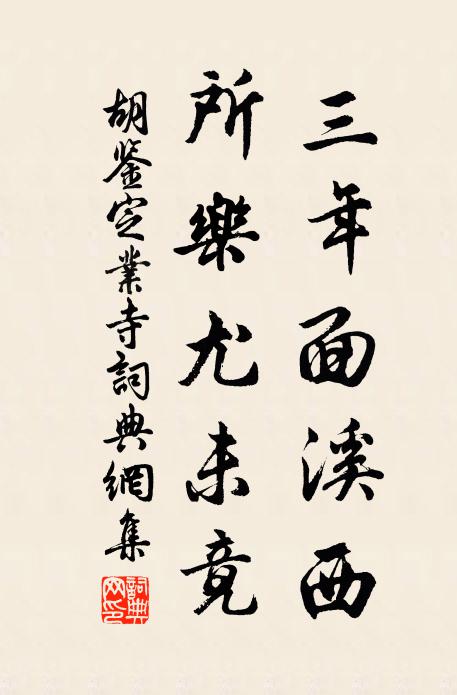 三年面溪西
所樂尤未竟
胡鉴定業寺詞典網集
詞典網印